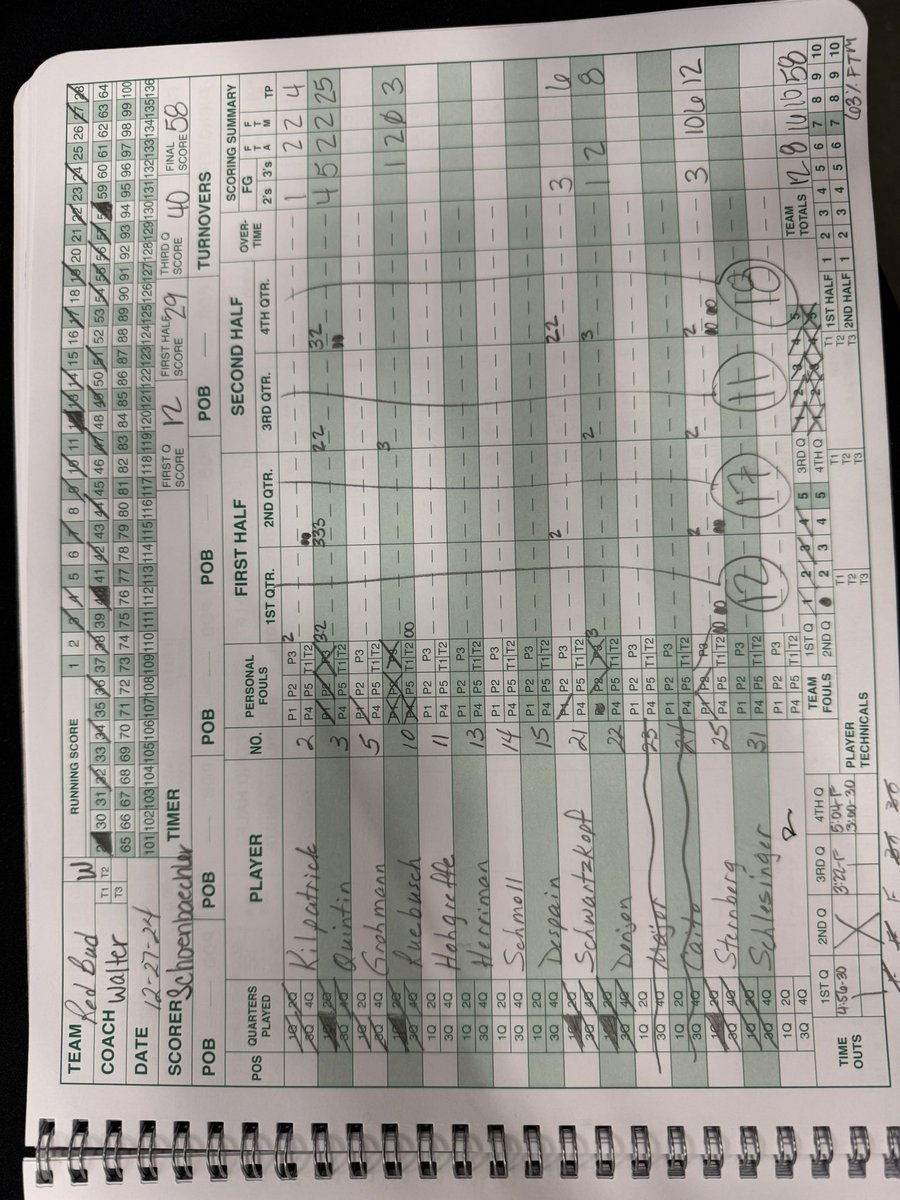 TEAM Red Bud W
RUNNING SCORE
1 2 3 4 5 6 7 8 9 10 11 12 13 14 15 16 17 18 19 20 21 22 23 24 25 26 27 28
COACH Walter
T1 T2
30 31 32 33 34 35 36 37 38 39 41 42 43 44 45 46 47 48 49 50 51 52 53 54 55 56 57 59 60 61 62 63 64
DATE 12-27-24
T3
65 66 67 68 69 70 71 72 73 74 75 76 77 78 79 80 81 82 83 84 85 86 87 88 89 90 91 92 93 94 95 96 97 98 99 100
101 102 103 104 105 106 107 108 109 110 111 112 113 114 115 116 117 118 119 120 121 122 123 124 125 126 127 128 129 130 131 132 133 134 135 136
SCORER Schoenbaechler TIMER
FIRST Q SCORE 12 FIRST HALF SCORE 29 THIRD Q SCORE 40 FINAL SCORE 58
POB POB POB POB POB TURNOVERS
POS QUARTERS PLAYED PLAYER NO. PERSONAL FOULS FIRST HALF SECOND HALF OVER-TIME SCORING SUMMARY
1ST QTR. 2ND QTR. 3RD QTR. 4TH QTR. FG 2's 3's FTA FTM TP
1Q 2Q 3Q 4Q Kilpatrick 2 P1 P2 P3 P4 P5 T1 T2 2 1 2 2 4
1Q 2Q 3Q 4Q Quintin 3 P1 P2 P3 P4 P5 T1 T2 32 333 22 32 4 5 2 2 25
1Q 2Q 3Q 4Q Grohmann 5 P1 P2 P3 P4 P5 T1 T2
1Q 2Q 3Q 4Q Ruebusch 10 P1 P2 P3 P4 P5 T1 T2 00 3 1 2 0 3
1Q 2Q 3Q 4Q Hohgrefe 11 P1 P2 P3 P4 P5 T1 T2
1Q 2Q 3Q 4Q Herriman 13 P1 P2 P3 P4 P5 T1 T2
1Q 2Q 3Q 4Q Schmoll 14 P1 P2 P3 P4 P5 T1 T2
1Q 2Q 3Q 4Q Despain 15 P1 P2 P3 P4 P5 T1 T2
1Q 2Q 3Q 4Q Schwartzkopf 21 P1 P2 P3 P4 P5 T1 T2 2 22 3 6
1Q 2Q 3Q 4Q Denson 22 P1 P2 P3 P4 P5 T1 T2 3 2 3 1 2 8
1Q 2Q 3Q 4Q Major 23 P1 P2 P3 P4 P5 T1 T2
1Q 2Q 3Q 4Q Caito 24 P1 P2 P3 P4 P5 T1 T2
1Q 2Q 3Q 4Q Sternberg 25 P1 P2 P3 P4 P5 T1 T2 2 2 2 3 10 6 12
1Q 2Q 3Q 4Q Schlesinger 31 P1 P2 P3 P4 P5 T1 T2
1Q 2Q 3Q 4Q P1 P2 P3 P4 P5 T1 T2 12 17 11 18 TEAM TOTALS 12 8 16 10 58
TIME OUTS 1ST Q 2ND Q 3RD Q 4TH Q TEAM FOULS 1ST Q 1 2 3 4 5 3RD Q 1 2 3 4 5 1ST HALF 1 2 3 4 5 6 7 8 9 10
4:56-30 3:22-F 5:04-F 2ND Q 2 3 4 5 4TH Q 1 2 3 4 5 2ND HALF 1 2 3 4 5 6 7 8 9 10
3:00-30 PLAYER TECHNICALS T1 T2 T3 T1 T2 T3 T1 T2 T3
63% FTM